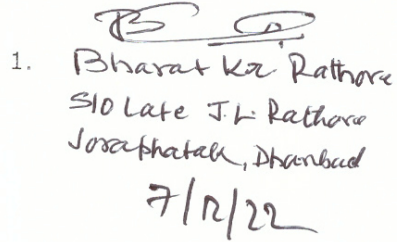 1. Bharat Kr. Rathore
S/O Late J.L. Rathore
Joraphatak, Dhanbad
7/12/22